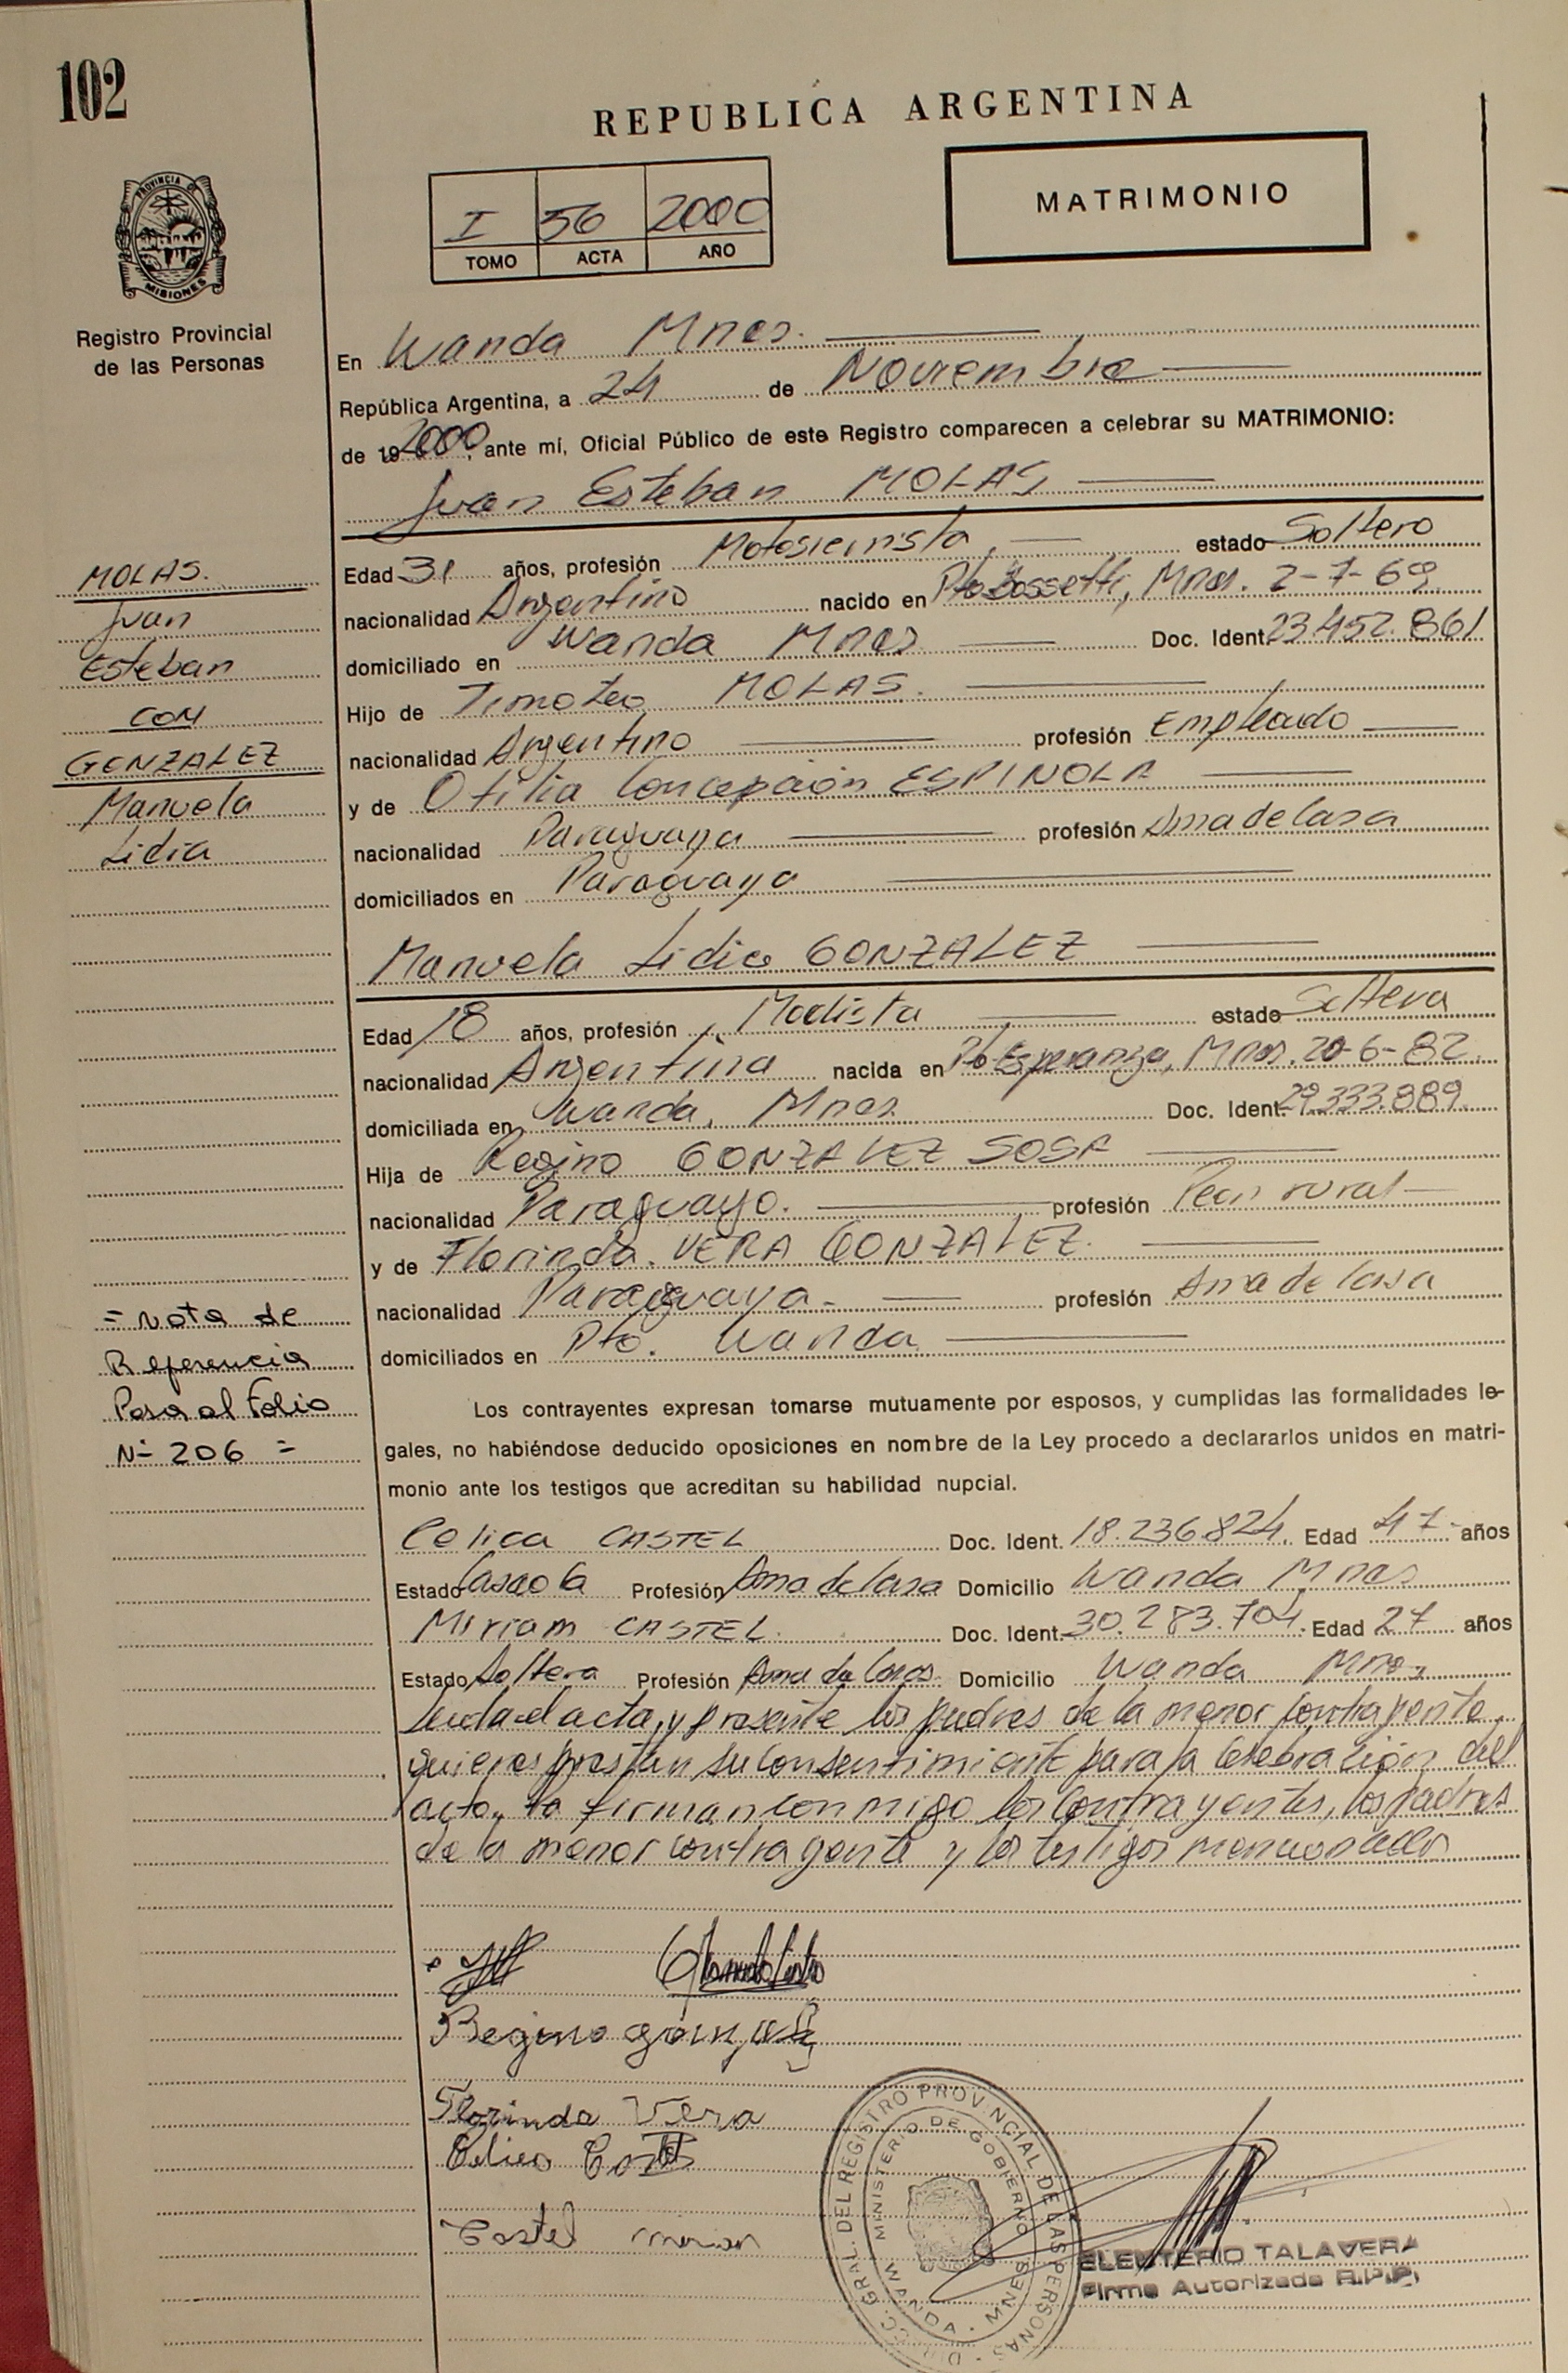 102
REPUBLICA ARGENTINA
PROVINCIA DE
MISIONES
I 56 2000
TOMO ACTA AÑO
MATRIMONIO
Registro Provincial
de las Personas
En Wanda Mnes.
República Argentina, a 24 de Noviembre
de 19 2000, ante mí, Oficial Público de este Registro comparecen a celebrar su MATRIMONIO:
Juan Esteban MOLAS
MOLAS.
Juan
Esteban
CON
GONZALEZ
Manuela
Lidia
Edad 31 años, profesión Motosierrista, estado Soltero
nacionalidad Argentino nacido en Pto Bossetti, Mnes. 2-7-69
domiciliado en Wanda Mnes Doc. Ident. 23.452.861
Hijo de Timoteo MOLAS.
nacionalidad Argentino profesión Empleado
y de Otilia Concepción ESPINOLA
nacionalidad Paraguaya profesión Ama de Casa
domiciliados en Paraguaya
Manuela Lidia GONZALEZ
Edad 18 años, profesión Modista estado Soltera
nacionalidad Argentina nacida en Pto Esperanza, Mnes. 20-6-82
domiciliada en Wanda, Mnes. Doc. Ident. 29.333.889
Hija de Regino GONZALEZ SOSA
nacionalidad Paraguayo. profesión Peon rural
y de Florinda. VERA GONZALEZ.
nacionalidad Paraguaya. profesión Ama de Casa
domiciliados en Pto. Wanda
= Nota de
Referencia
Pasa al Folio
Nº 206 =
Los contrayentes expresan tomarse mutuamente por esposos, y cumplidas las formalidades le-
gales, no habiéndose deducido oposiciones en nombre de la Ley procedo a declararlos unidos en matri-
monio ante los testigos que acreditan su habilidad nupcial.
Celica CASTEL Doc. Ident. 18.236.824. Edad 47 años
Estado Casada Profesión Ama de Casa Domicilio Wanda Mnes
Miriam CASTEL. Doc. Ident. 30.283.704. Edad 27 años
Estado Soltera Profesión Ama de Casa Domicilio Wanda Mnes.
Leida el acta, y presente los padres de la menor contrayente,
quienes prestan su consentimiento para la celebración del
acto, la firman conmigo los contrayentes, los padres
de la menor contrayente y los testigos mencionados
Regino gonzalez
Florinda Vera
Celica Castel
Castel miriam
DIRECC. GRAL. DEL REGISTRO PROVINCIAL DE LAS PERSONAS
MINISTERIO DE GOBIERNO
WANDA - MNES
ELEUTERIO TALAVERA
Firma Autorizada R.P.P.